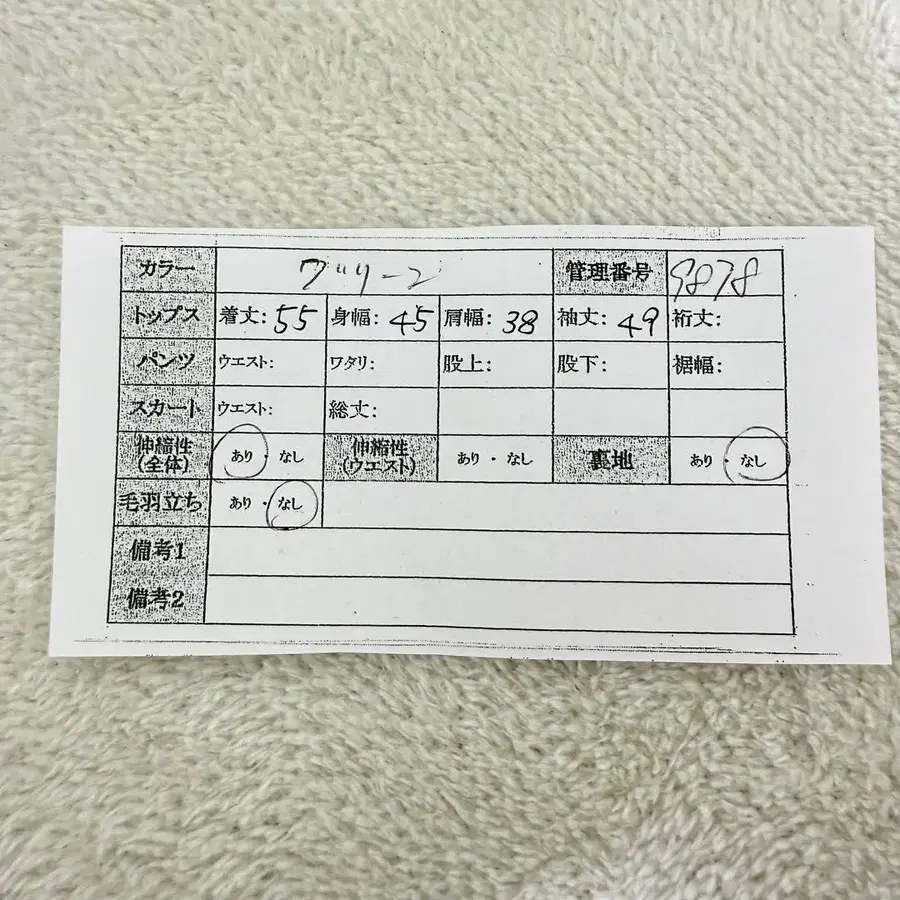 カラー グリーン 管理番号 9878
トップス 着丈: 55 身幅: 45 肩幅: 38 袖丈: 49 裄丈:
パンツ ウエスト: ワタリ: 股上: 股下: 裾幅:
スカート ウエスト: 総丈:
伸縮性(全体) あり・なし 伸縮性(ウエスト) あり・なし 裏地 あり・なし
毛羽立ち あり・なし
備考1
備考2